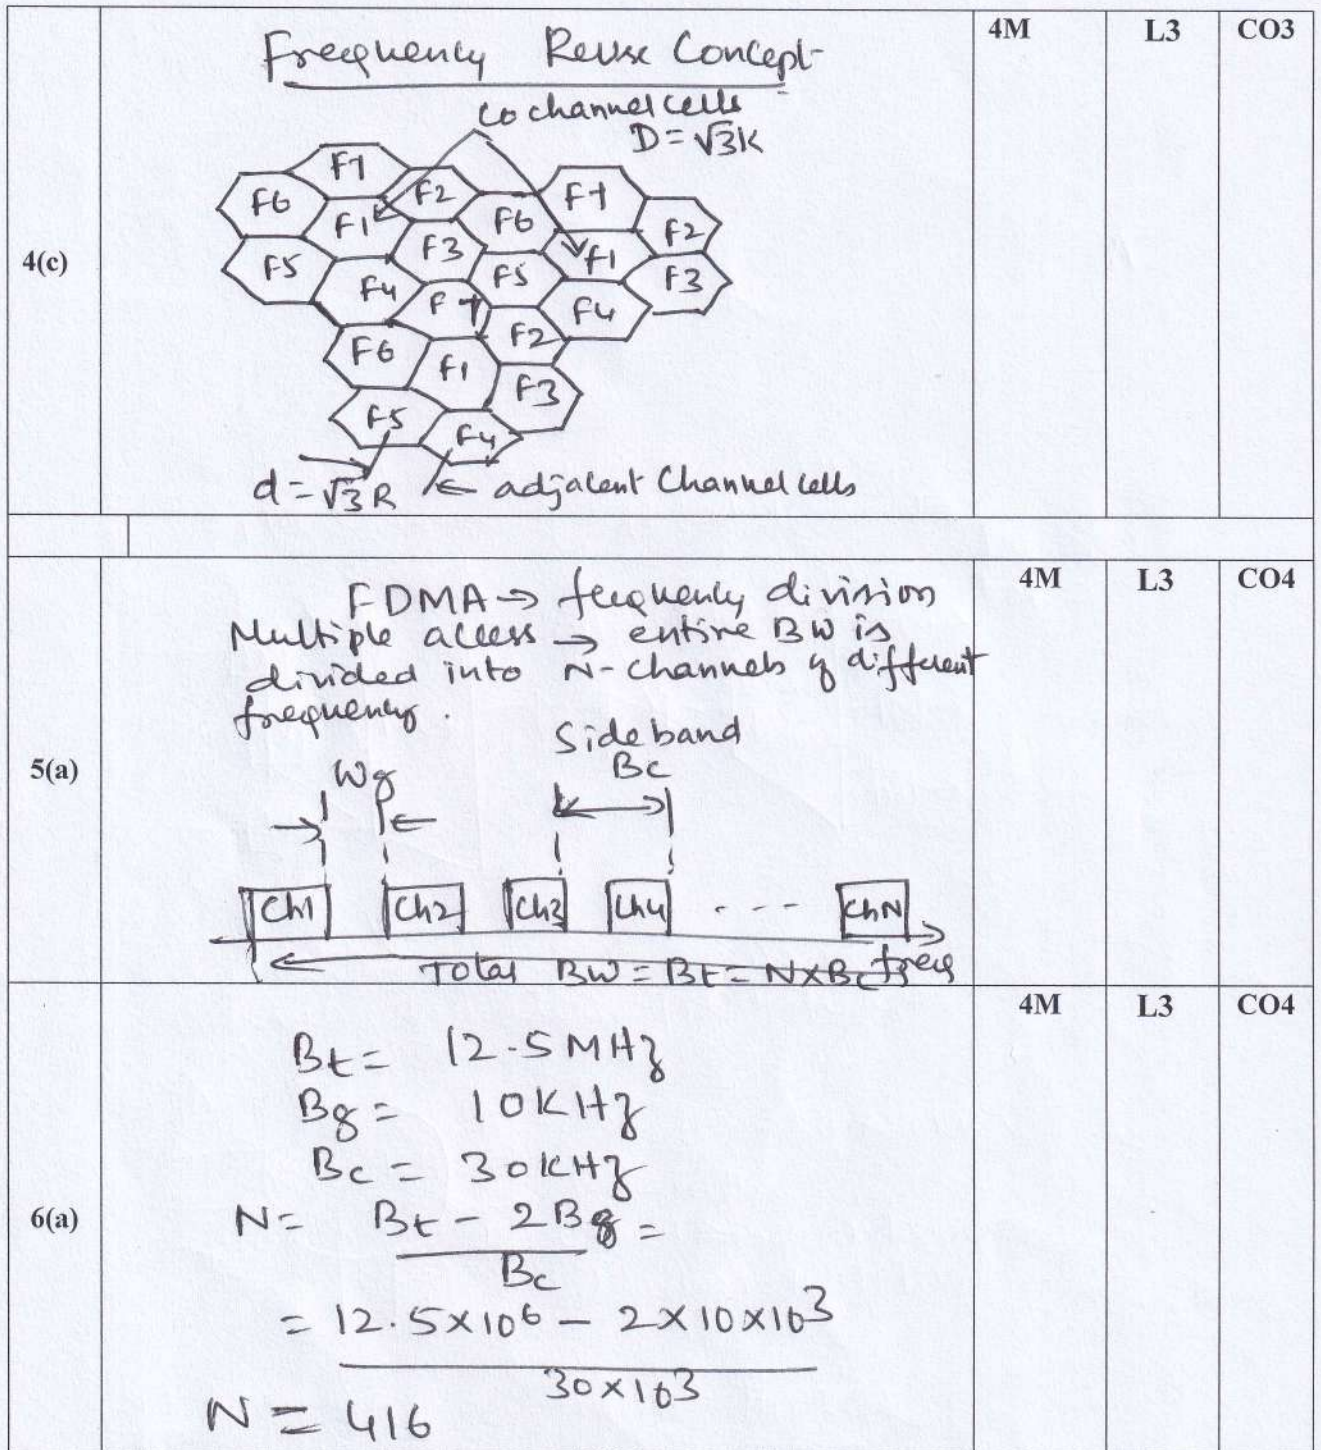 4(c)
Frequency Reuse Concept
4M L3 CO3
Co channel cells
D = √3K
F7
F6 F2 F7
F1 F6 F2
F3 F1
F5 F5 F3
F4 F7 F4
F2
F6 F1
F3
F5
F4
d = √3 R ← adjacent Channel cells
5(a)
FDMA → frequency division
4M L3 CO4
Multiple access → entire BW is
divided into N-channels of different
frequency.
Side band
Wg Bc
Ch1 Ch2 Ch3 Ch4 . - - - ChN
Total BW = Bt = N×Bc freq
4M L3 CO4
Bt = 12.5 MHz
Bg = 10KHz
Bc = 30KHz
6(a)
N = Bt - 2Bg =
Bc
= 12.5×10⁶ - 2×10×10³
30×10³
N = 416